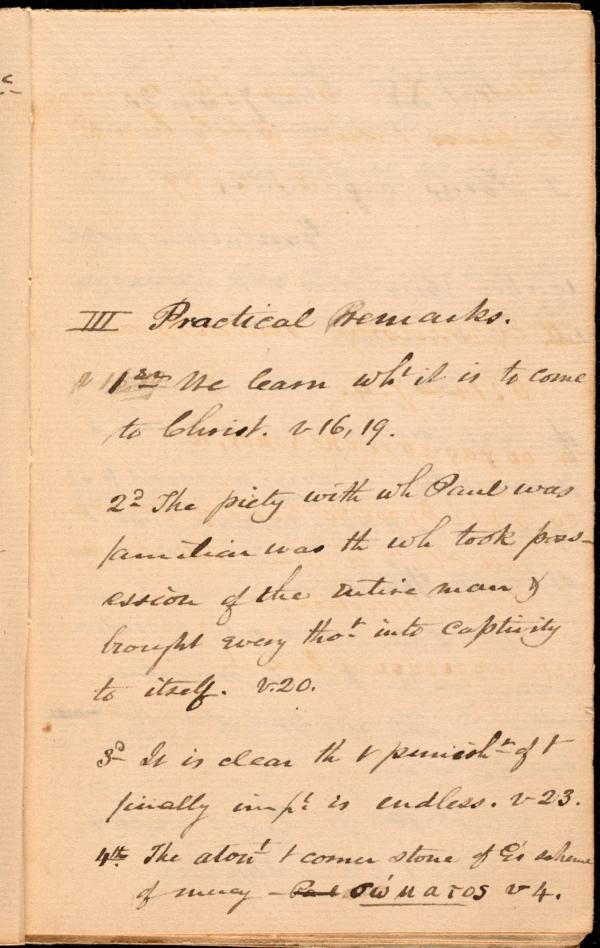 III Practical Remarks.
1st We learn wht it is to come
to Christ. v 16, 19.
2d The piety with wh Paul was
familiar was th wh took poss-
ession of the entire man &
brought every thot into captivity
to itself. v. 20.
3d It is clear th t punisht of t
finally impt is endless. v 23.
4th The atont t corner stone of G's scheme
of mercy – σώματος v 4.